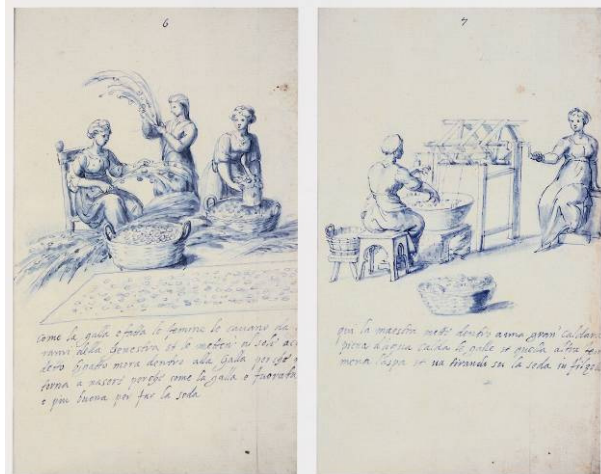 6
come la galla e fatta le femine le cavano da
rami della Genestra et le metteno al sole acio
detto mora dentro alla Galla perche
torna a nascere perche come la galla e forata
e piu buona per far la seda
7
qui la maestra mette dentro a una gran caldara
piena d'aqua calda le galle et quella altra
mena l'aspa et va tirando su la seda in